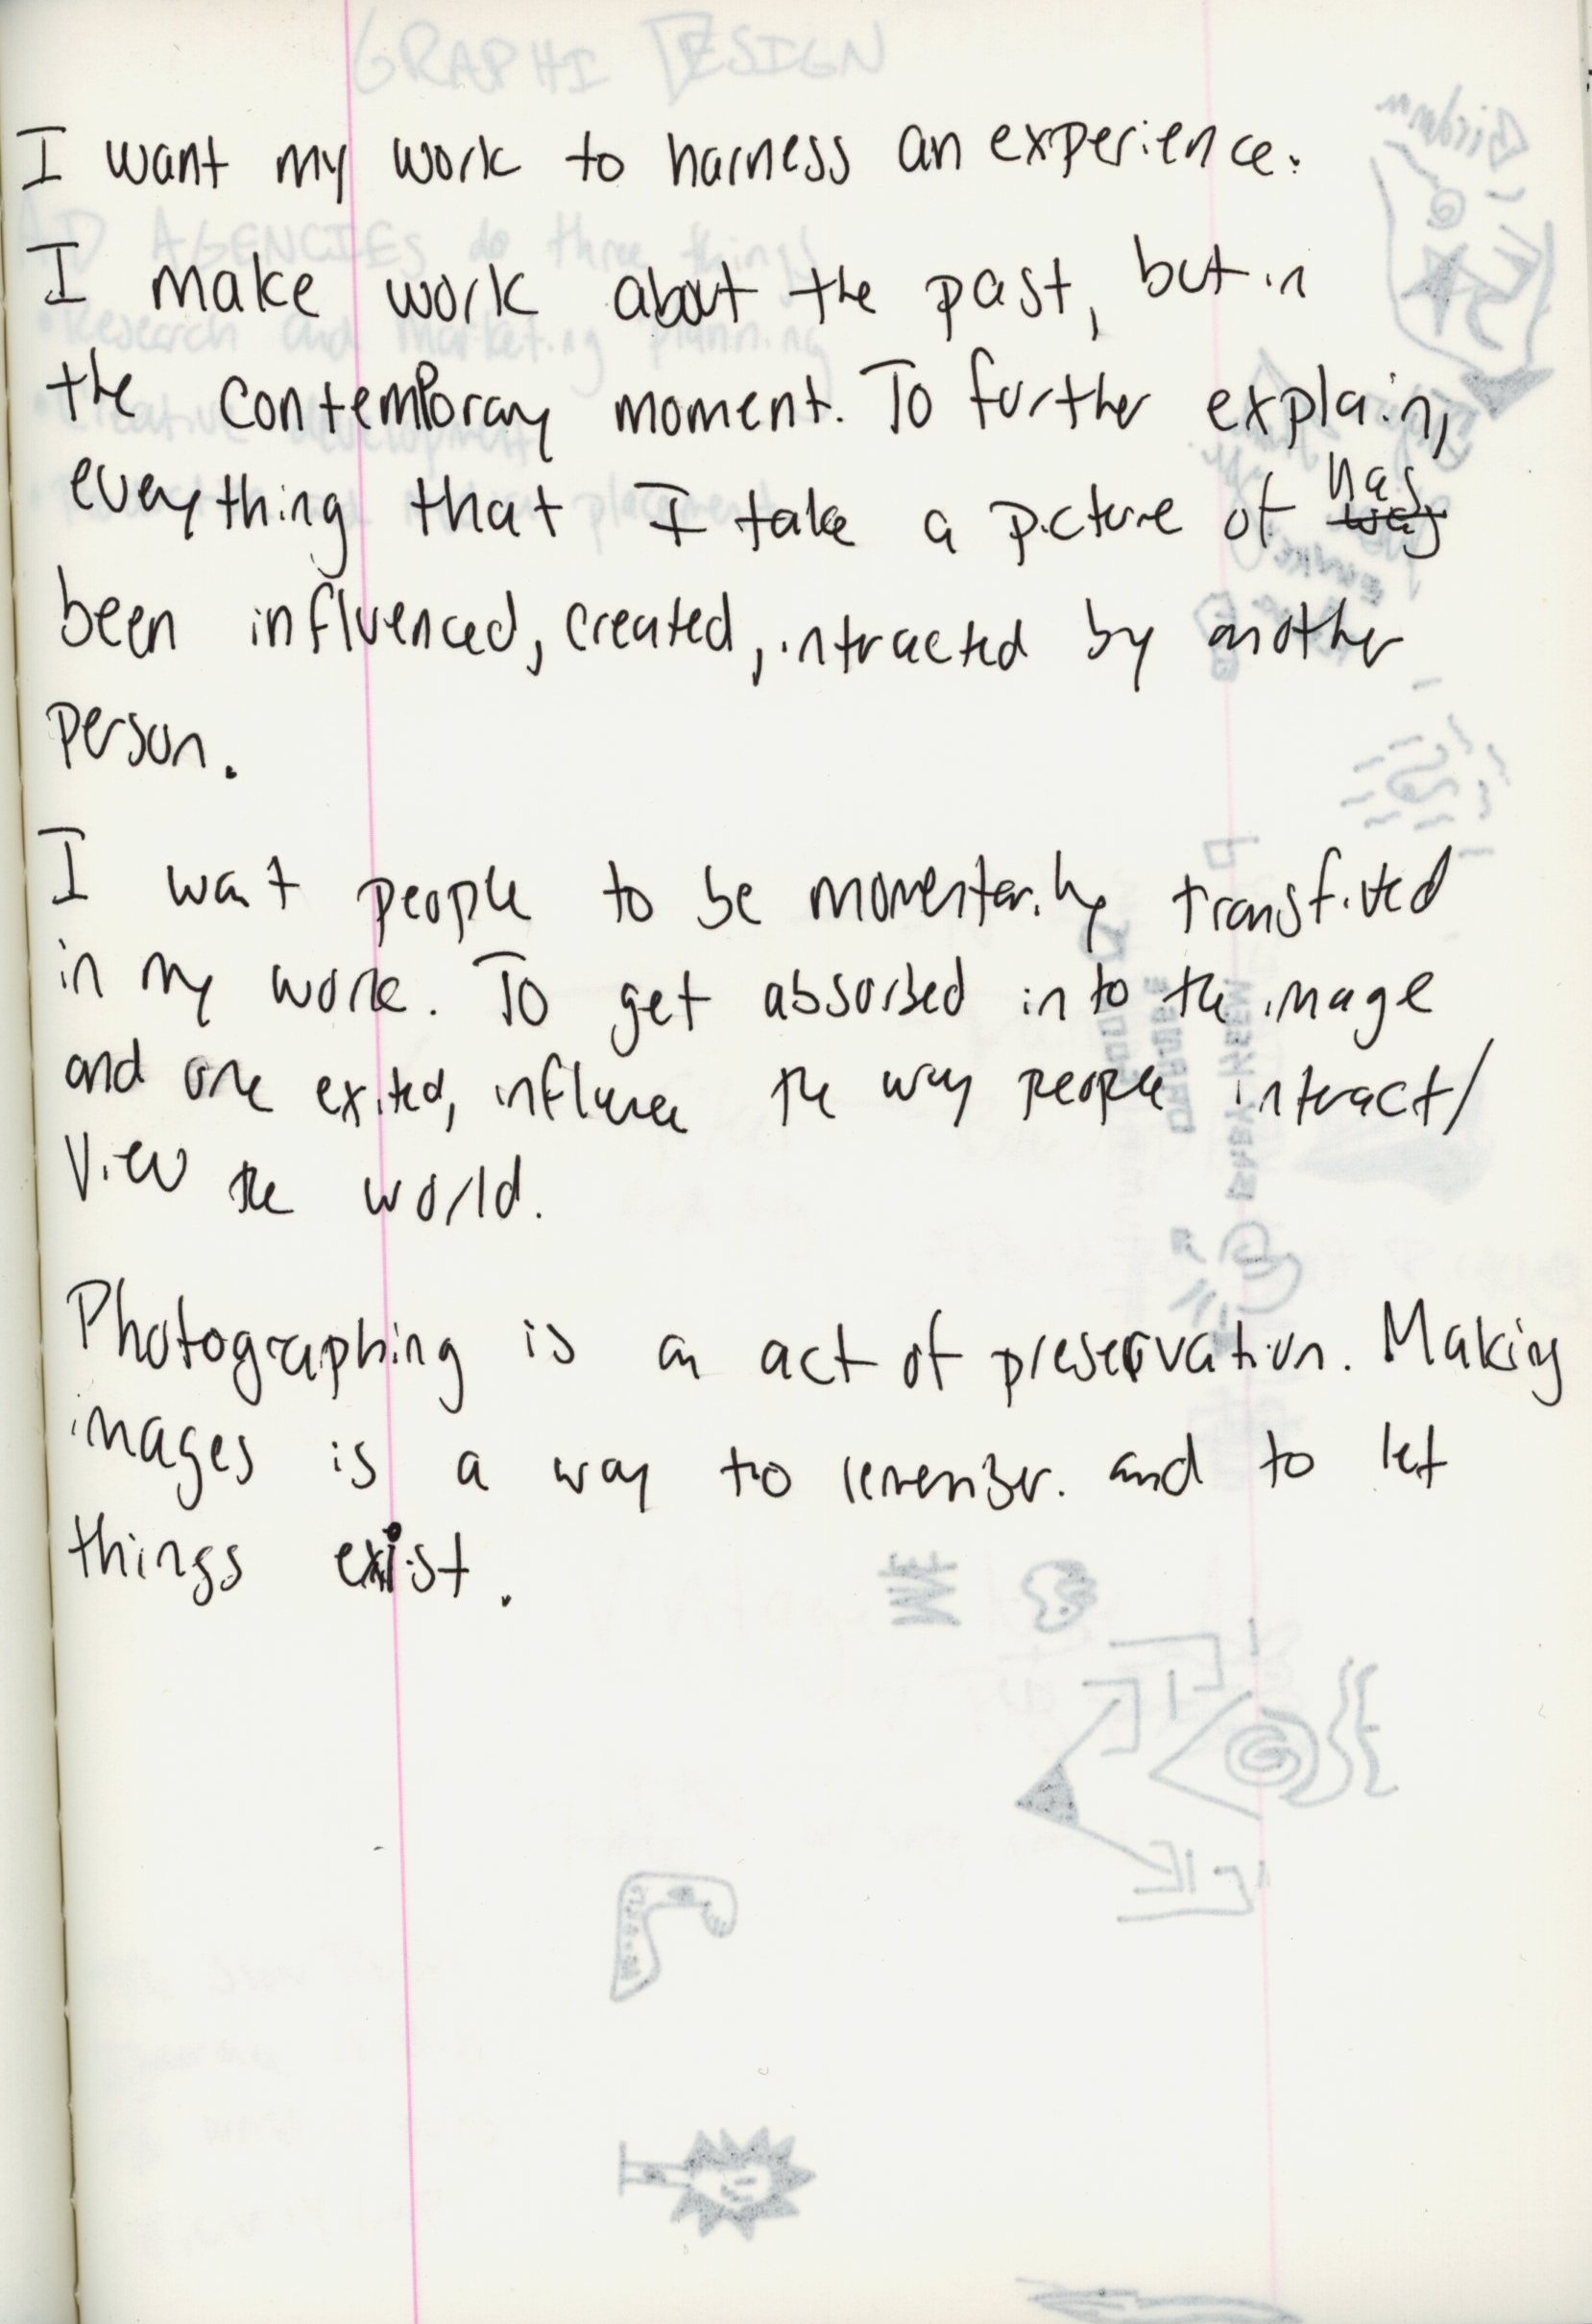 GRAPHI DESIGN
I want my work to harness an experience.
AD AGENCIES do three things
I make work about the past, but in
• Research and Marketing planning
the contemporary moment. To further explain,
• Creative development
everything that I take a picture of has was
been influenced, created, interacted by another
person.
I want people to be momentarily transfixed
in my work. To get absorbed into the image
and once exited, influence the way people interact/
View the world.
Photographing is an act of preservation. Making
images is a way to remember. and to let
things exist.